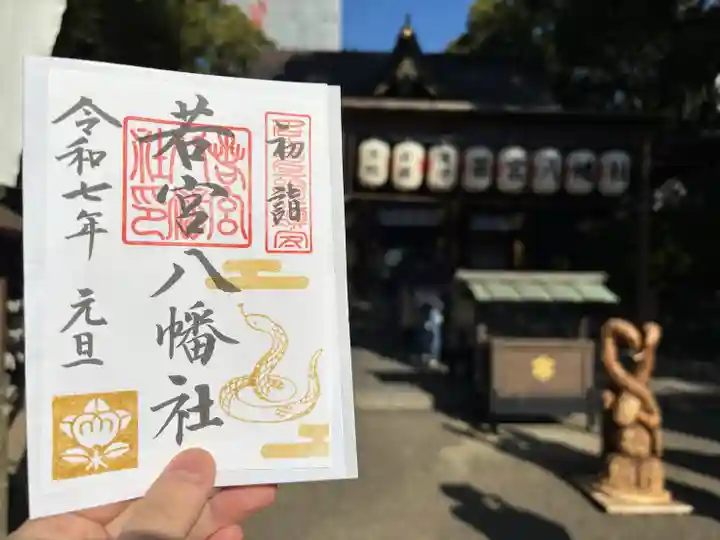 初詣
若宮八幡社
令和七年 元旦